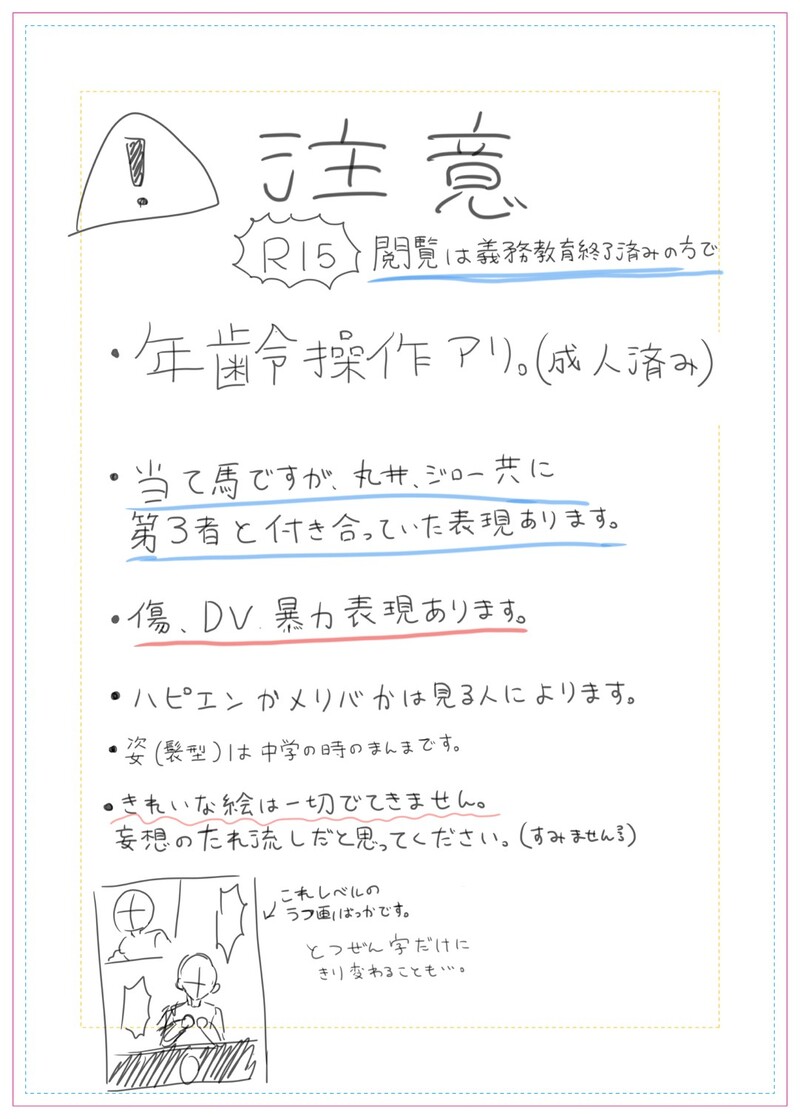 注意
R15 閲覧は義務教育終了済みの方で
・年齢操作アリ。(成人済み)
・当て馬ですが、丸井、ジロー共に
第3者と付き合っていた表現あります。
・傷、DV、暴力表現あります。
・ハピエンかメリバかは見る人によります。
・姿(髪型)は中学の時のまんまです。
・きれいな絵は一切でてきません。
妄想のたれ流しだと思ってください。(すみませんる)
これレベルの
ラフ画ばっかです。
とつぜん字だけに
きり変わることも…。